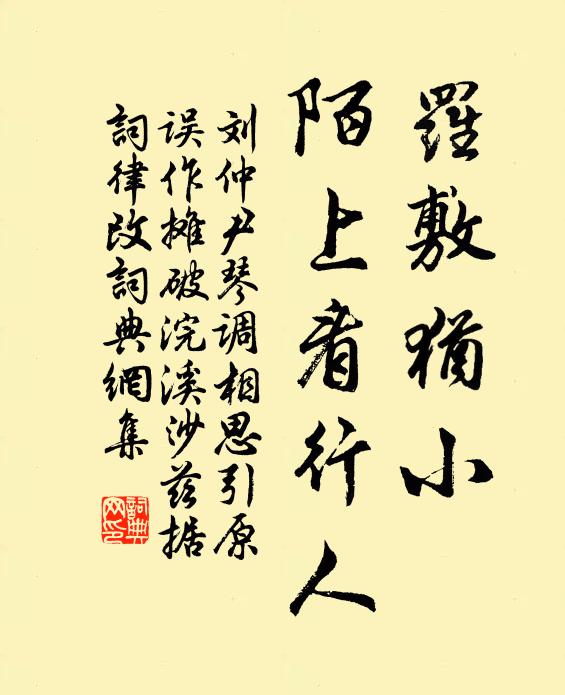 羅敷猶小
陌上看行人
刘仲尹琴调相思引原
误作摊破浣溪沙茲据
詞律改詞典網集
詞典
网印